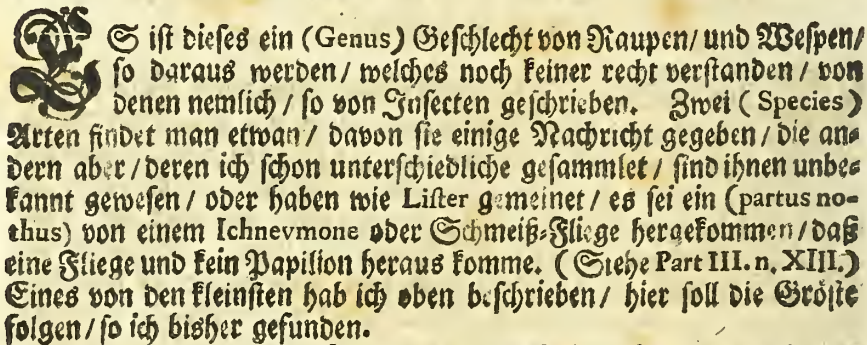 ES iſt dieſes ein (Genus) Geſchlecht von Raupen/ und Weſpen/
ſo daraus werden/ welches noch keiner recht verſtanden/ von
denen nemlich/ ſo von Inſecten geſchrieben. Zwei (Species)
Arten findet man etwan/ davon ſie einige Nachricht gegeben/ die an-
dern aber/ deren ich ſchon unterſchiedliche geſammlet/ ſind ihnen unbe-
kannt geweſen/ oder haben wie Liſter gemeinet/ es ſei ein (partus no-
thus) von einem Ichnevmone oder Schmeiß-Fliege hergekommen/ daß
eine Fliege und kein Papilion heraus komme. (Siehe Part III. n. XIII.)
Eines von den kleinſten hab ich oben beſchrieben/ hier ſoll die Gröſte
folgen/ ſo ich bisher gefunden.